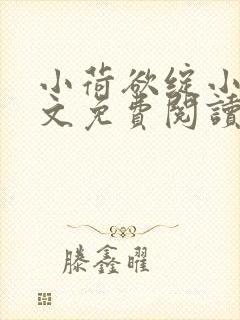 小荷欲綻小
文免費閱讀
滕鑫曜